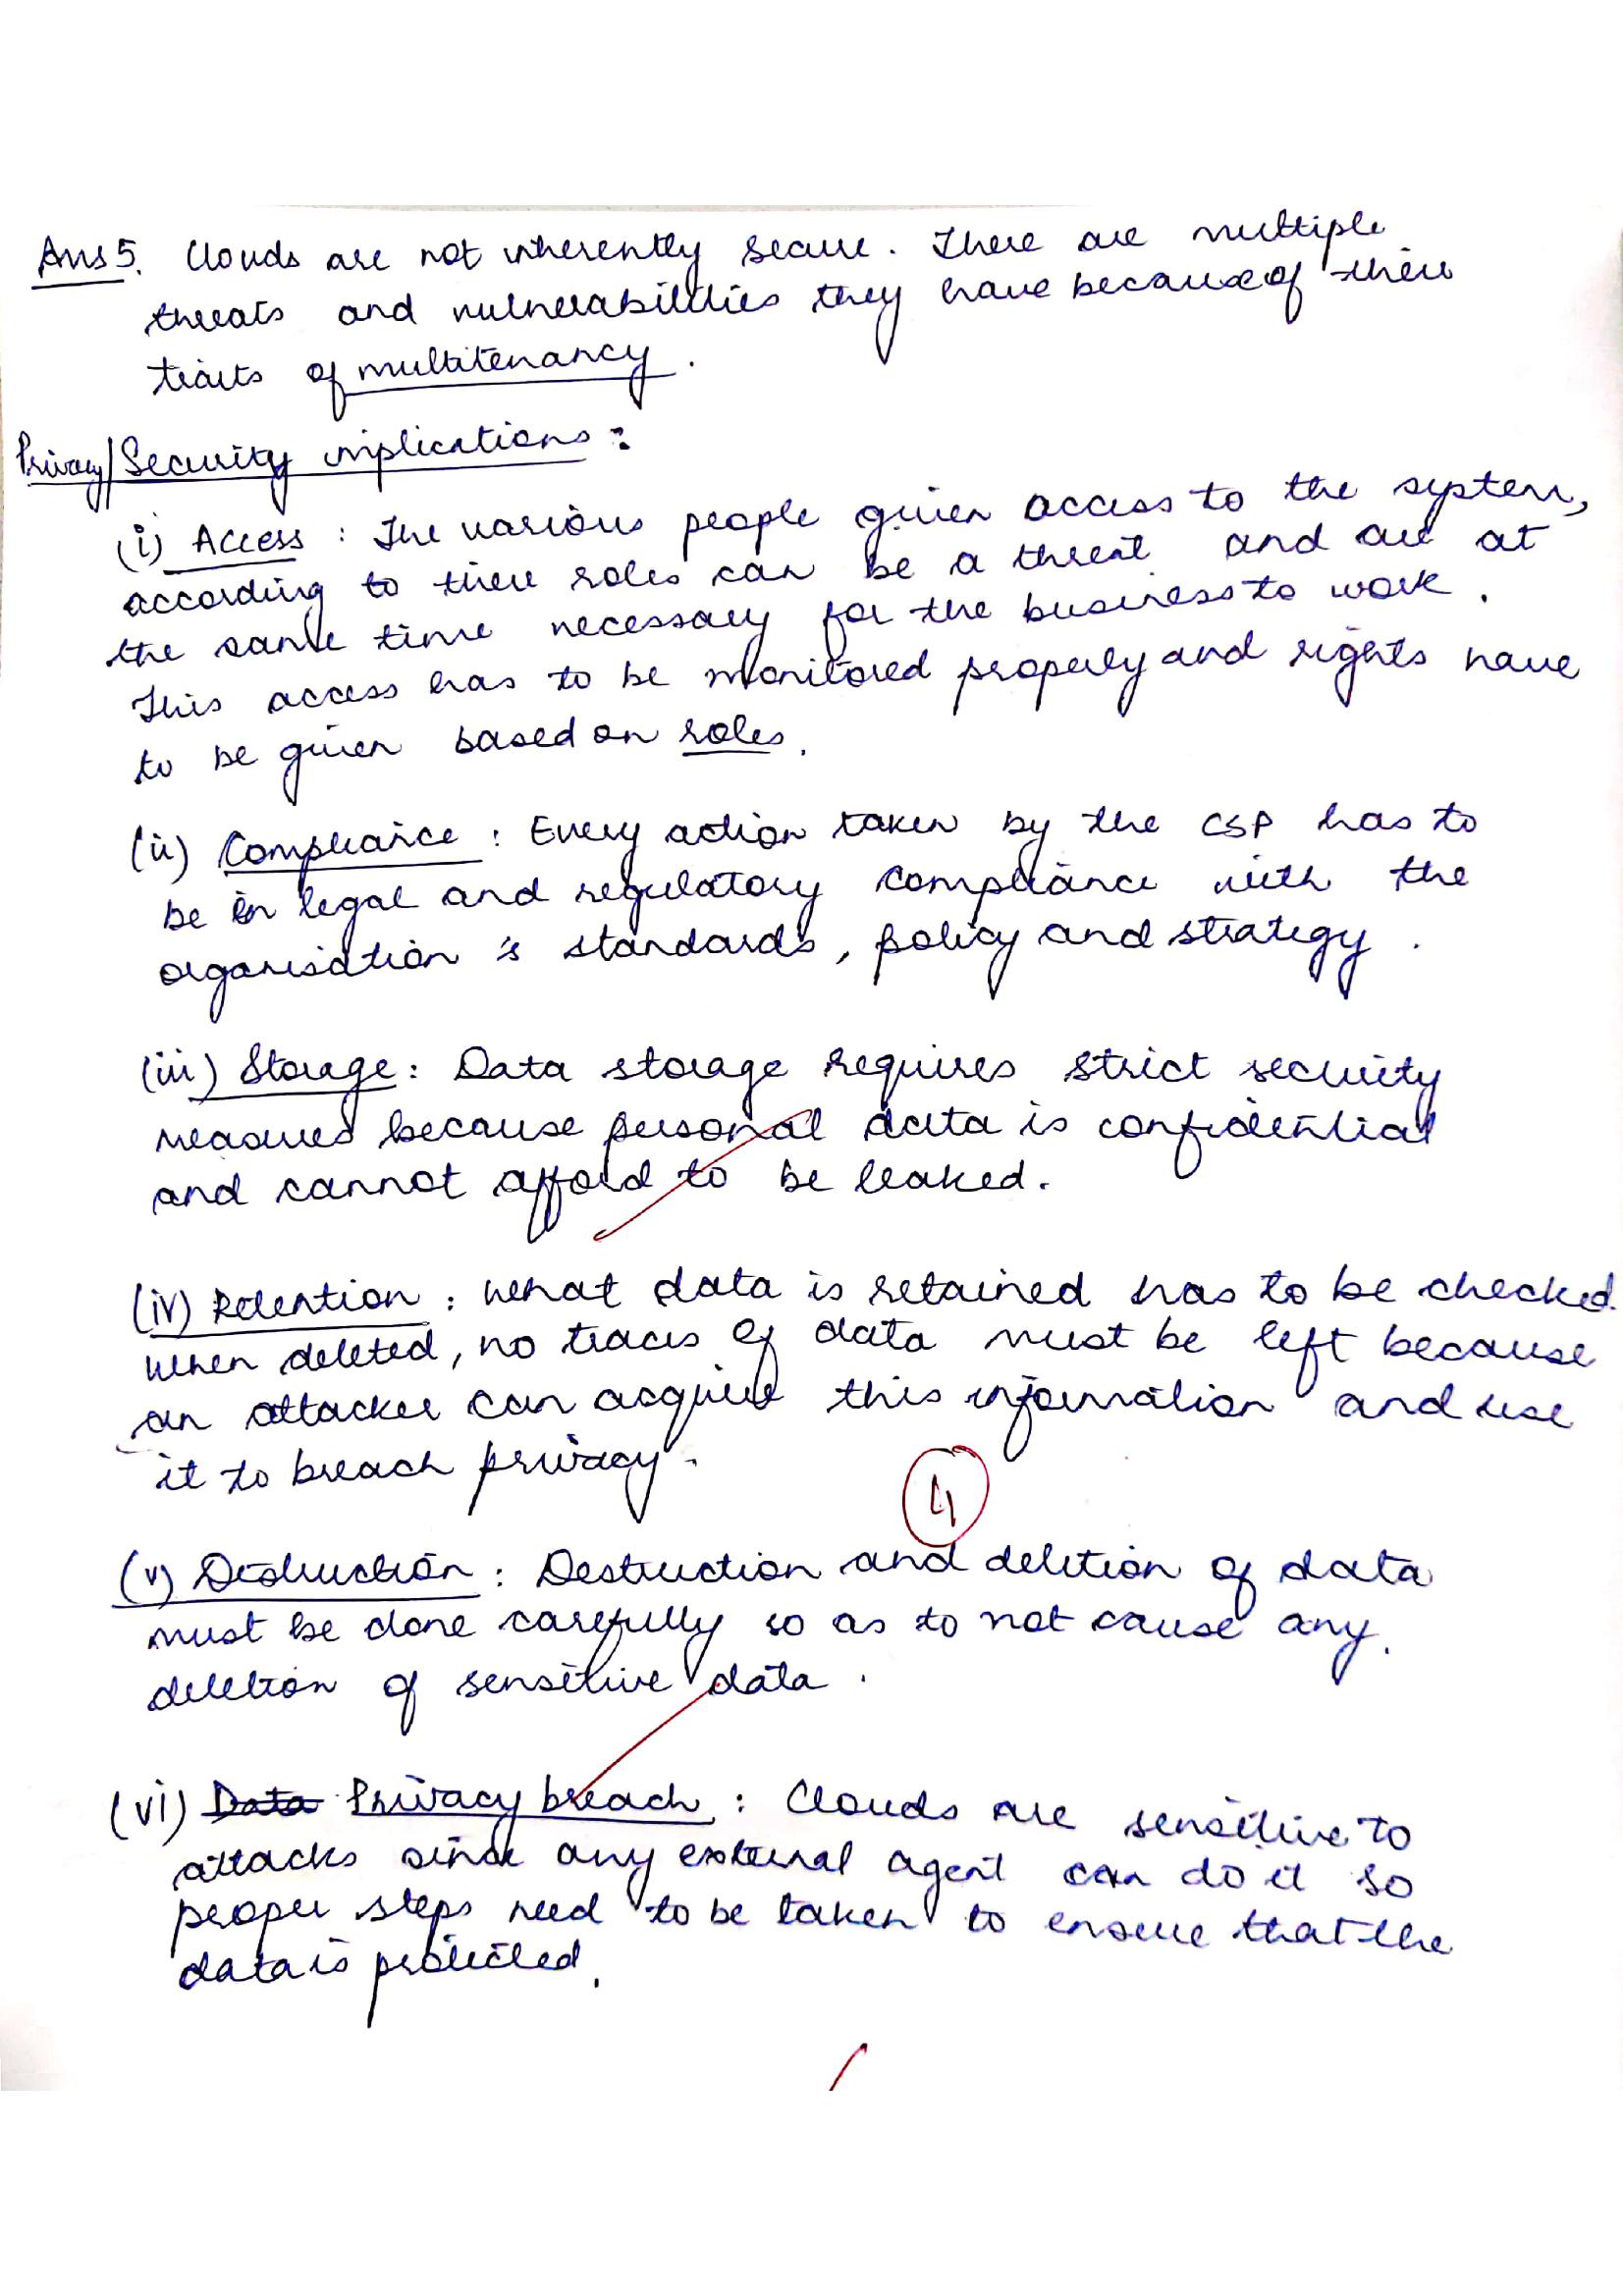 Ans 5. Clouds are not inherently secure. There are multiple
threats and vulnerabilities they have because of their
traits of multitenancy.
Privacy/Security implications:
(i) Access : The various people given access to the system,
according to their roles can be a threat and are at
the same time necessary for the business to work.
This access has to be monitored properly and rights have
to be given based on roles.
(ii) Compliance : Every action taken by the CSP has to
be in legal and regulatory compliance with the
organisation's standards, policy and strategy.
(iii) Storage : Data storage requires strict security
measures because personal data is confidential
and cannot afford to be leaked.
(iv) Retention : What data is retained has to be checked.
When deleted, no traces of data must be left because
an attacker can acquire this information and use
it to breach privacy.
4
(v) Destruction : Destruction and deletion of data
must be done carefully so as to not cause any
deletion of sensitive data.
(vi) Data Privacy breach : Clouds are sensitive to
attacks since any external agent can do it so
proper steps need to be taken to ensure that the
data is protected.